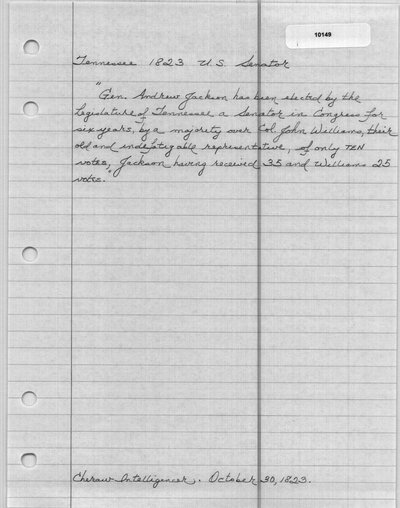 10149
Tennessee 1823 U.S. Senator
"Gen. Andrew Jackson has been elected by the
Legislature of Tennessee a Senator in Congress for
six years, by a majority over Col. John Williams, their
old and indefatigable representative, of only TEN
votes, Jackson having received 35 and Williams 25
votes."
Cheraw Intelligencer. October 30, 1823.